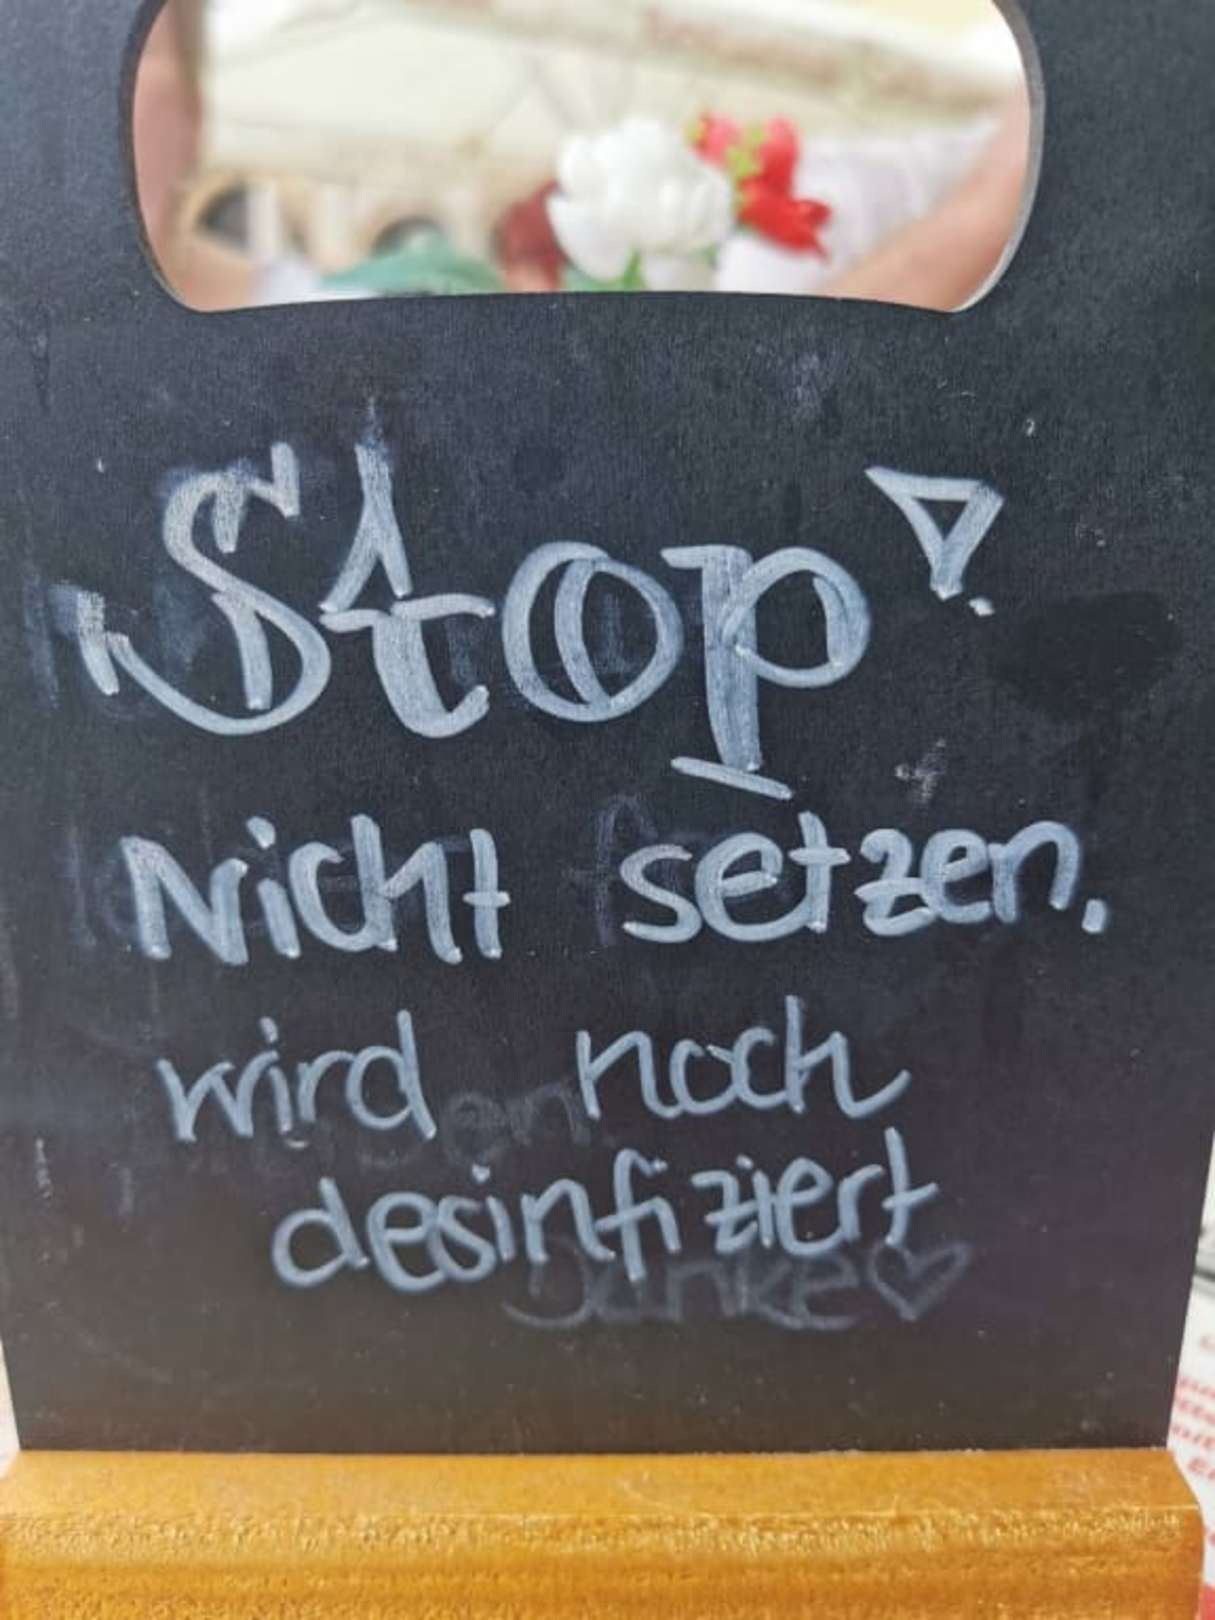 Stop!
Nicht setzen.
wird noch
desinfiziert
Danke